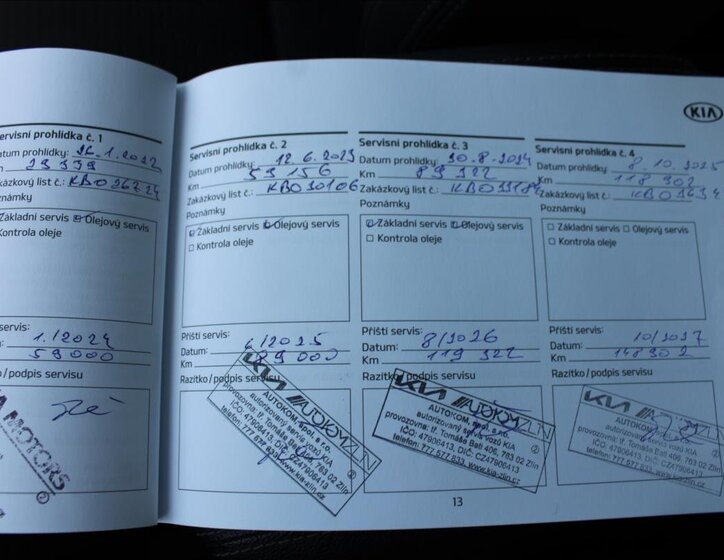 KIA
ervisní prohlídka č. 1
atum prohlídky: 26.1.2022
Km 29 339
akázkový list č.: KBO26224
známky
Základní servis Olejový servis
Kontrola oleje
servis:
1./2024
59000
zítko / podpis servisu
A MOTORS
Servisní prohlídka č. 2
Datum prohlídky: 12.6.2023
Km 59 156
Zakázkový list č.: KBO30106
Poznámky
Základní servis Olejový servis
Kontrola oleje
Příští servis:
Datum: 6/2025
Km 89000
Razítko / podpis servisu
KIA AUTOKOMZLÍN
AUTOKOM, spol. s r.o.
autorizovaný servis vozů KIA
provozovna: tř. Tomáše Bati 406, 763 02 Zlín
IČO: 47906413, DIČ: CZ47906413
telefon: 777 577 833, www.kia-zlin.cz
Servisní prohlídka č. 3
Datum prohlídky: 30.8.2024
Km 89 322
Zakázkový list č.: KBO33184
Poznámky
Základní servis Olejový servis
Kontrola oleje
Příští servis:
Datum: 8/2026
Km 119 322
Razítko / podpis servisu
KIA AUTOKOMZLÍN
AUTOKOM, spol. s r.o.
autorizovaný servis vozů KIA
provozovna: tř. Tomáše Bati 406, 763 02 Zlín
IČO: 47906413, DIČ: CZ47906413
telefon: 777 577 833, www.kia-zlin.cz
Servisní prohlídka č. 4
Datum prohlídky: 8.10.2025
Km 118 902
Zakázkový list č.:
Poznámky
Základní servis Olejový servis
Kontrola oleje
Příští servis:
Datum: 10/2027
Km 148902
Razítko / podpis servisu
KIA
AUTOKOM
autorizovaný servis vozů KIA
provozovna: tř. Tomáše Bati 406, 763 02 Zlín
IČO: 47906413, DIČ: CZ47906413
telefon: 777 577 833, www.kia-zlin.cz
13